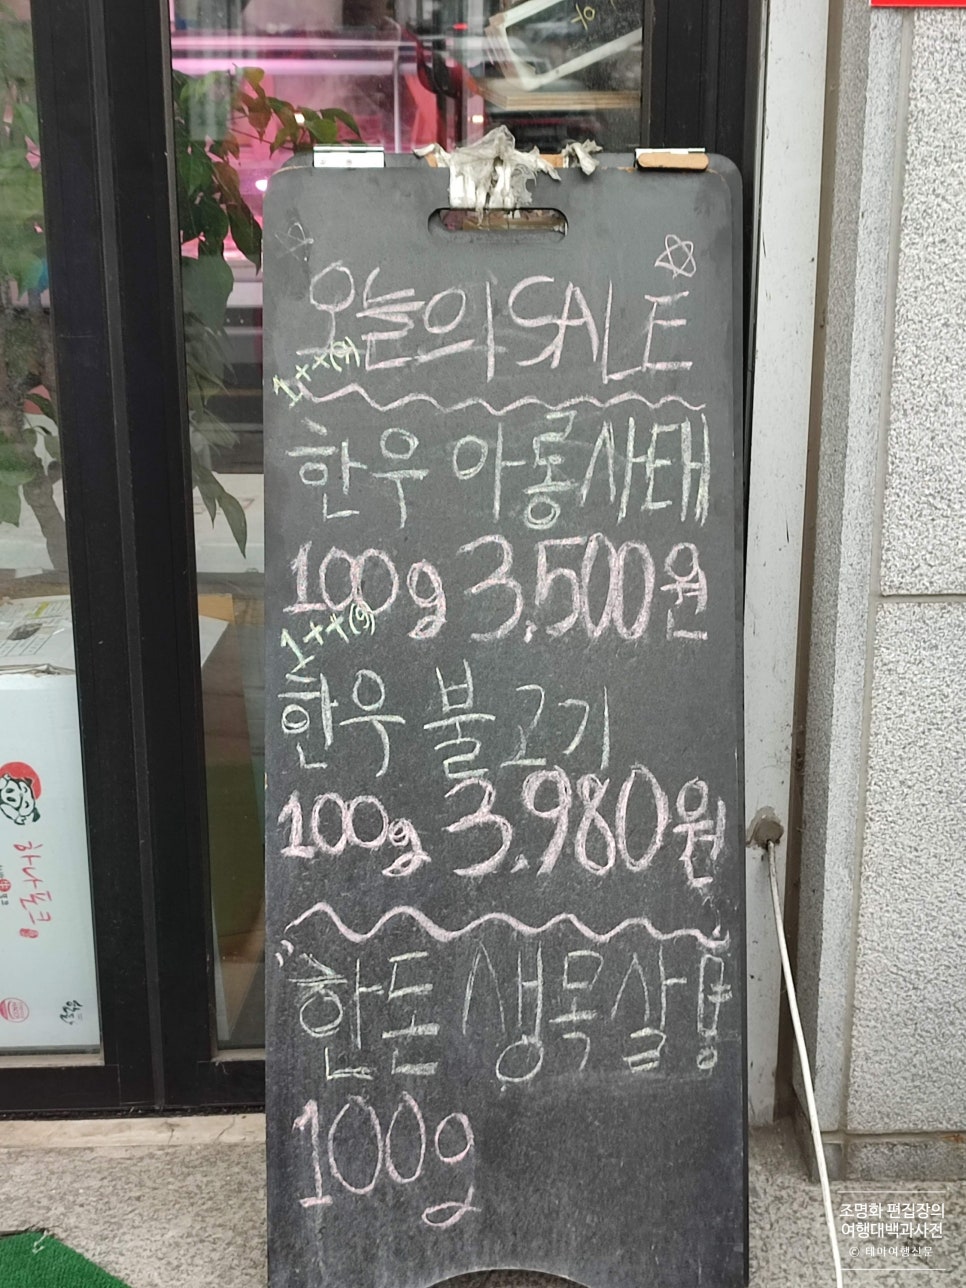 오늘의 SALE
1++(9)
한우 아롱사태
100g 3,500원
1++(9)
한우 불고기
100g 3,980원
한돈 생목살
100g
하나포크
조명화 편집장의
여행대백과사전
© 테마여행신문